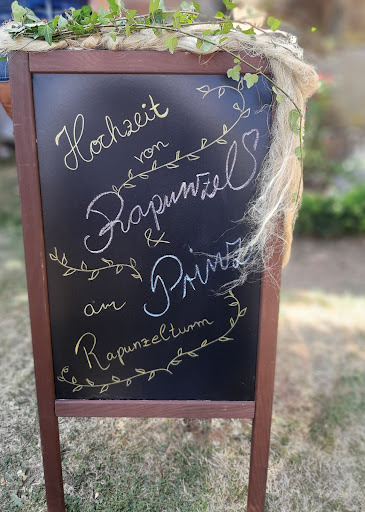 Hochzeit
von
Rapunzel
&
Prinz
am
Rapunzelturm